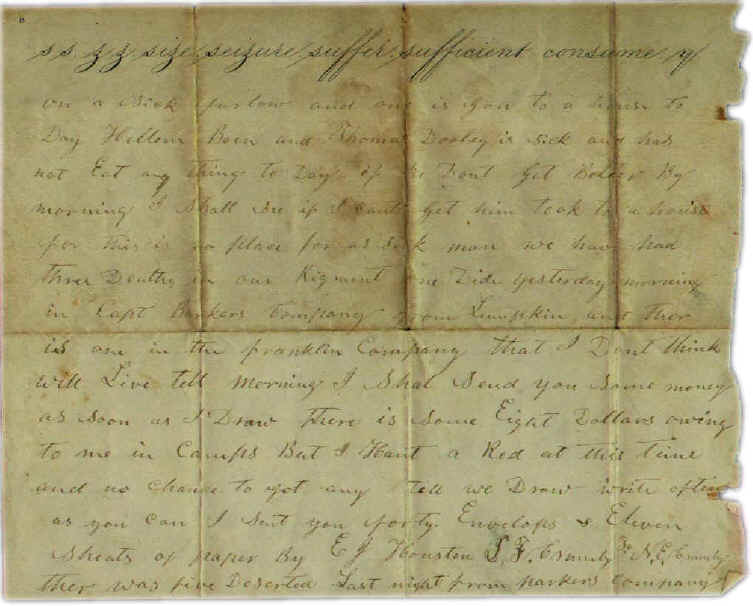 s s z z size seizure suffer sufficient consume y
on a Sick furlow and one is gon to a house to
Day Hellom Born and Thomas Dooley is sick and has
not Eat any thing to Day if he Dont Get Better By
morning I Shall See if I cant get him took to a house
for this is no place for a sick man we have had
three Deaths in our Rigment one Dide yesterday morning
in Capt Parkers Company from Lumpkin and ther
is one in the franklin Company that I Dont think
will Live tell morning I Shal Send you Some money
as Soon as I Draw there is Some Eight Dollars owing
to me in Camps But I Haint a Red at this time
and no chance to get any tell we Draw write often
as you can I Sent you forty Envelops & Eleven
Sheats of paper By E J Houston
ther was five Deserted Last night from Parkers Company